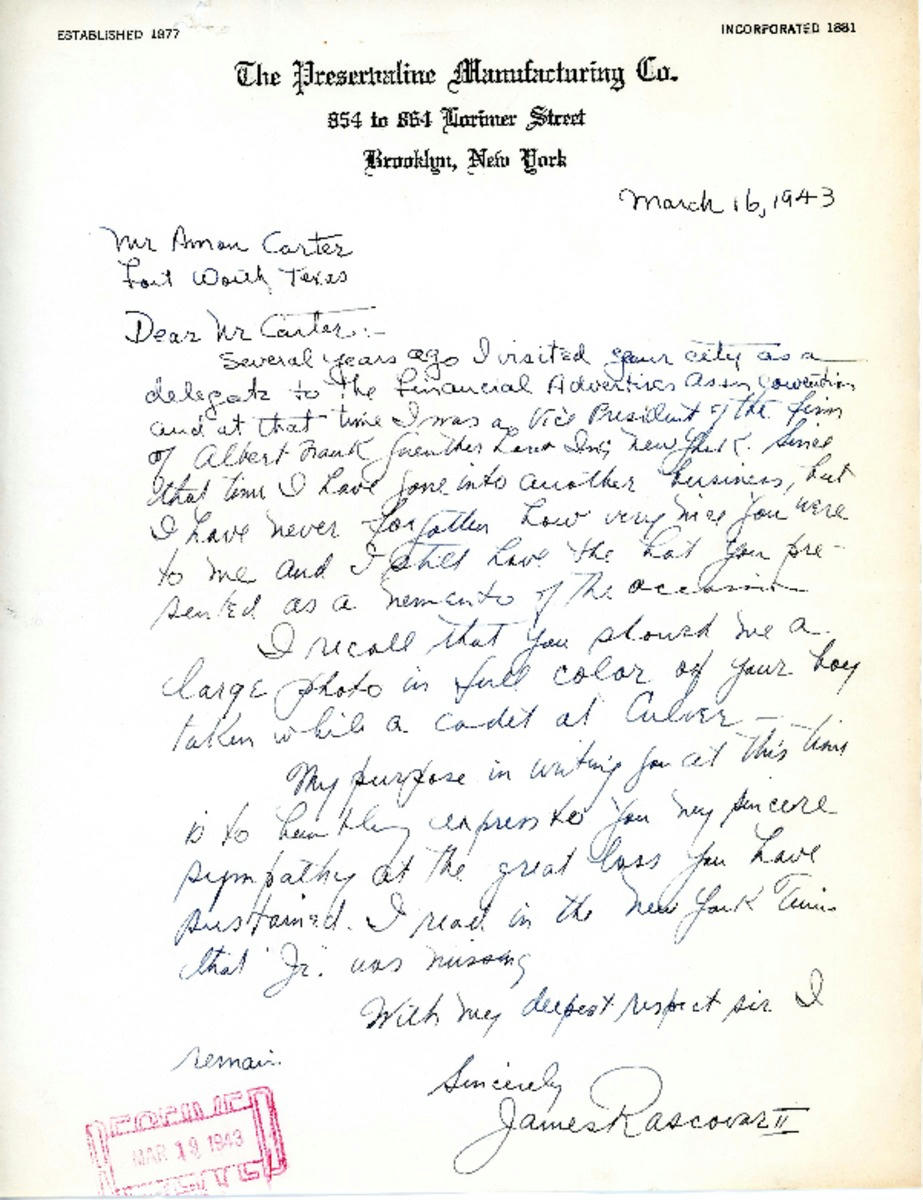 ESTABLISHED 1877
INCORPORATED 1881
The Preservaline Manufacturing Co.
854 to 864 Lorimer Street
Brooklyn, New York
March 16, 1943
Mr Amon Carter
Fort Worth, Texas
Dear Mr Carter:-
Several years ago I visited your city as a
delegate to the Financial Advertisers Assn convention
and at that time I was a Vice President of the firm
of Albert Frank Guenther Law Inc, New York. Since
that time I have gone into another business, but
I have never forgotten how very nice you were
to me and I still have the hat you pre-
sented as a memento of the occasion
I recall that you showed me a
large photo in full color of your boy
taken while a cadet at Culver —
My purpose in writing you at this time
is to humbly express to you my sincere
sympathy at the great loss you have
sustained. I read in the New York Times
that "Jr." was missing
With my deepest respect sir I
remain.
Sincerely
James Rascovar II
MAR 19 1943